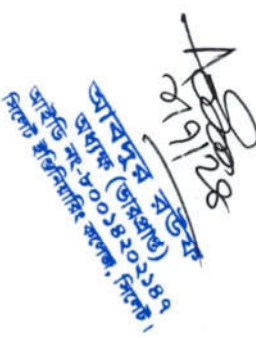 আবদুর রউফ
অধ্যক্ষ (ভারপ্রাপ্ত)
আইডি নং-৮০০১৪২০২১৪৭
সিলেট ইঞ্জিনিয়ারিং কলেজ, সিলেট।